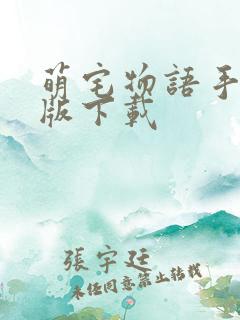 萌宅物語手
版下載
張宇廷
未经同意禁止转载